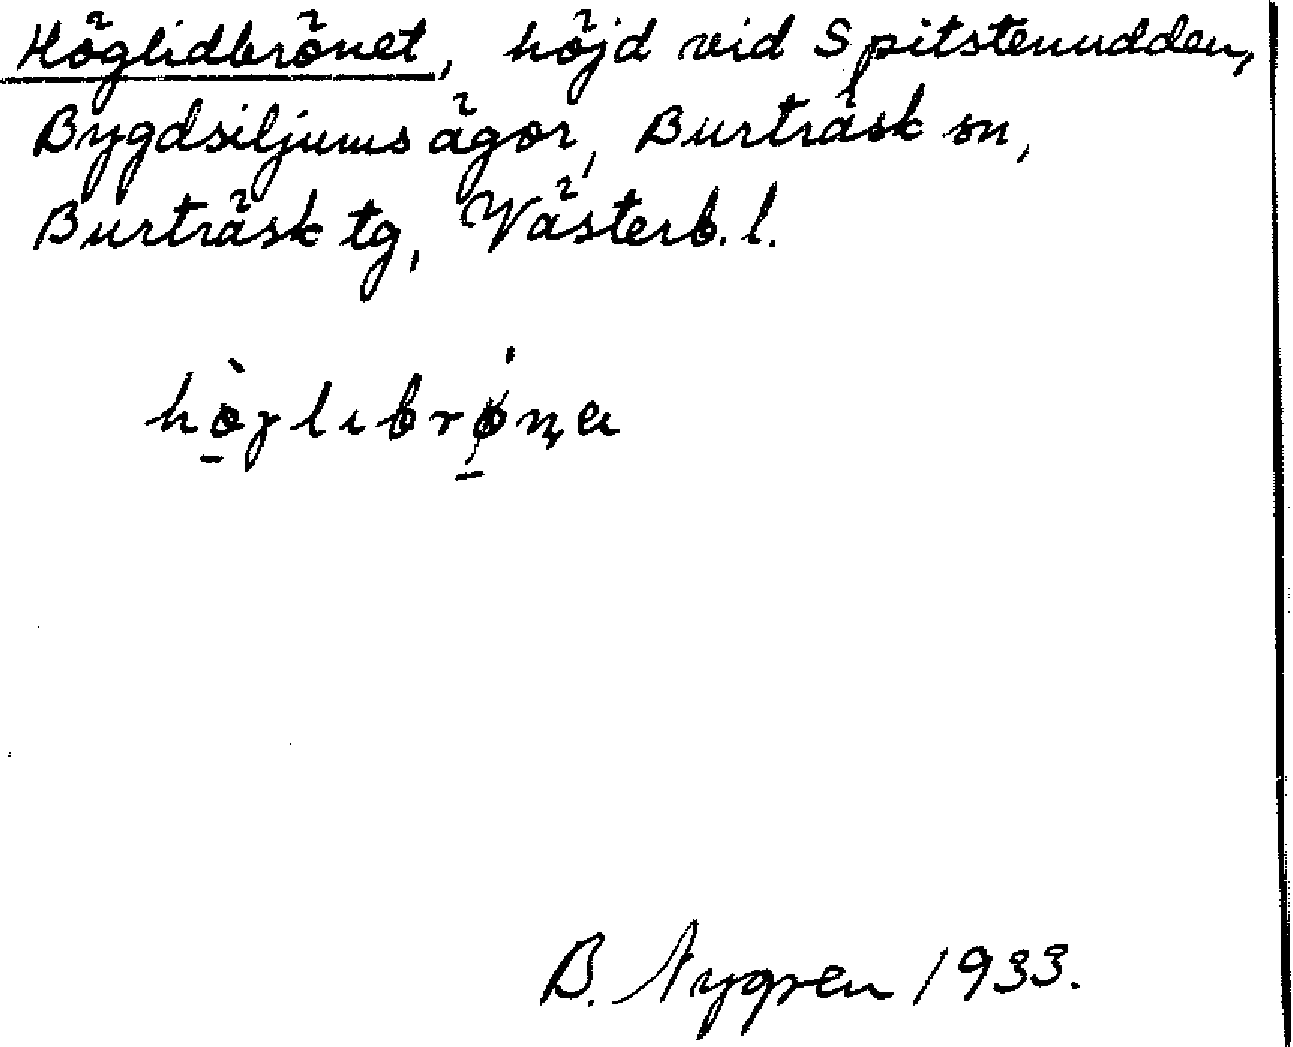 Höglidbrönet, höjd vid Spitstenudden,
Bygdsiljums ägor, Burträsk sn,
Burträsk tg, Västerb. l.
hö̀glıbrø̍na
B. Nygren 1933.